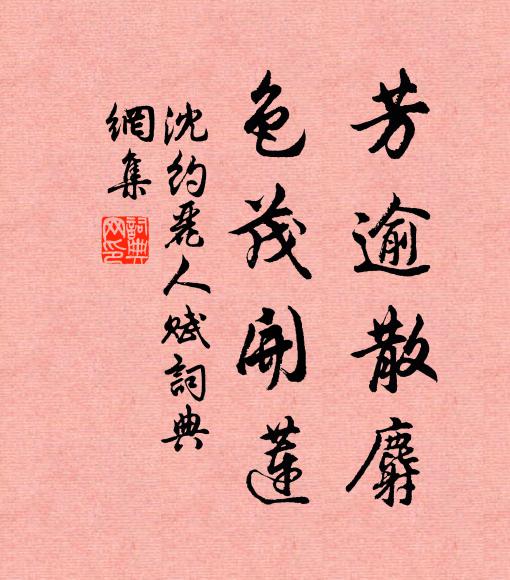 芳逾散麝
色茂開蓮
沈約麗人賦詞典
網集
詞典
网印